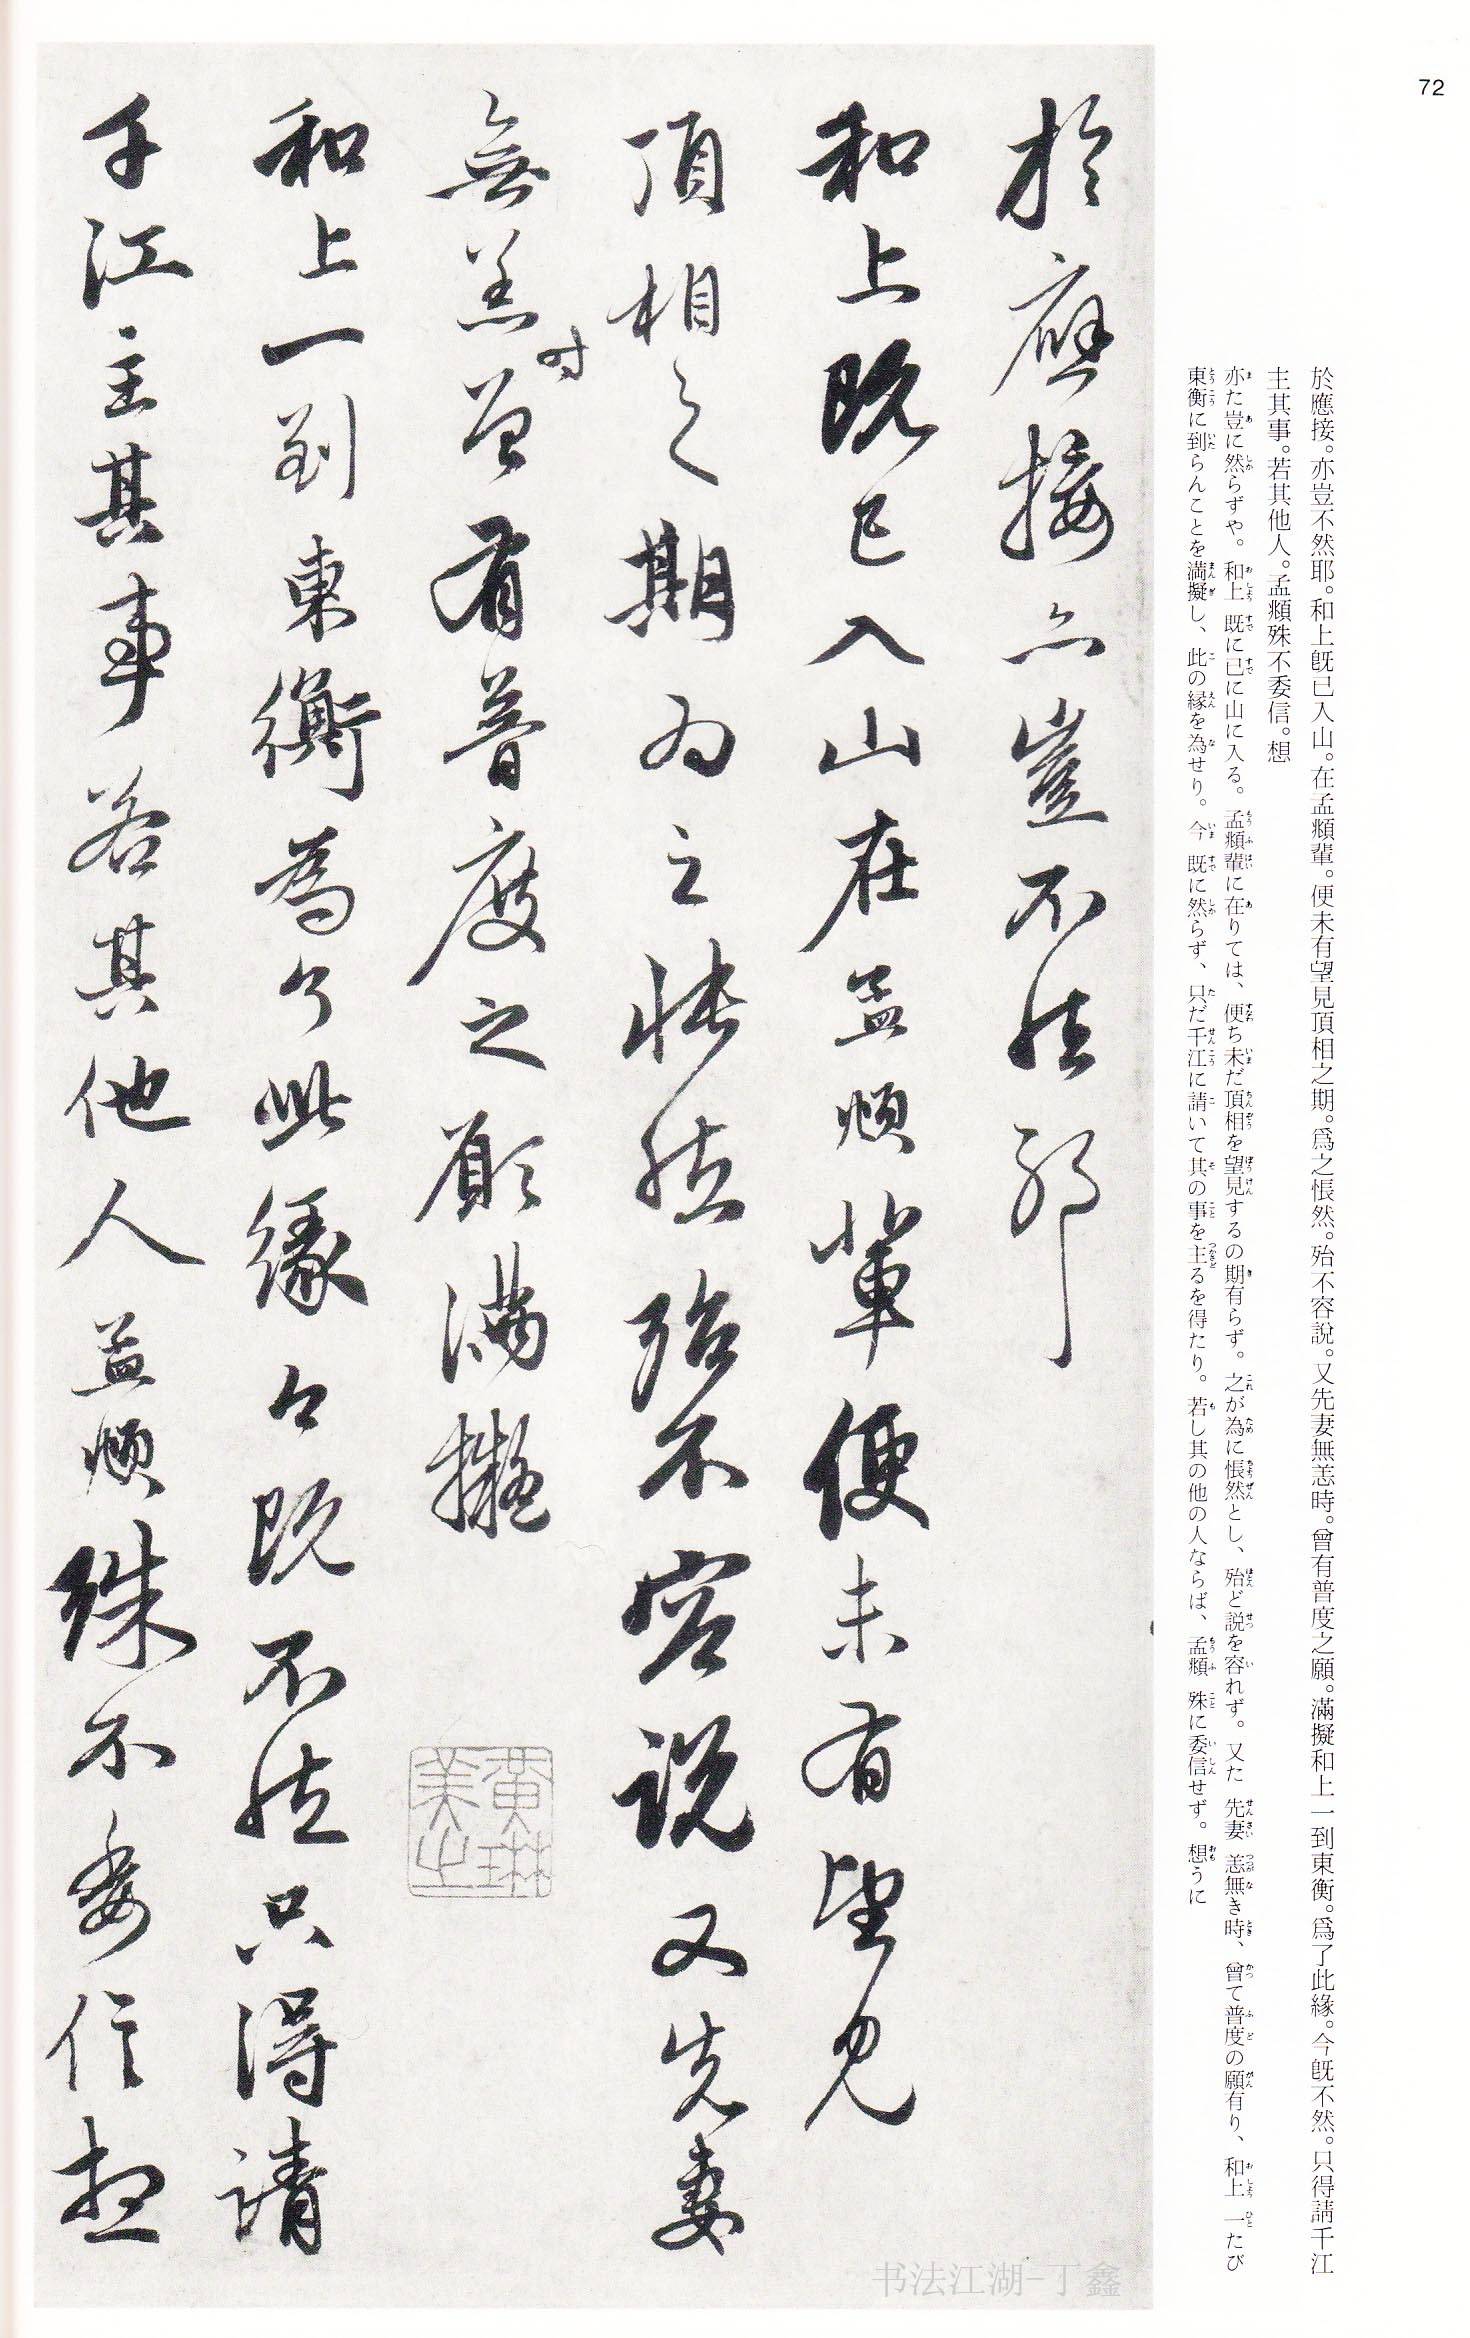 72
於應接。亦豈不然耶。和上既已入山。在孟頫輩。便未有望見頂相之期。爲之悵然。殆不容說。又先妻無恙時。曾有普度之願。滿擬和上一到東衡。爲了此緣。今既不然。只得請千江
主其事。若其他人。孟頫殊不委信。想
亦た豈に然らずや。和上既に已に山に入る。孟頫輩に在りては、便ち未だ頂相を望見するの期有らず。之が為に悵然とし、殆ど説を容れず。又た先妻恙無き時、曾て普度の願有り、和上一たび
東衡に到らんことを満擬し、此の縁を為せり。今既に然らず、只だ千江に請いて其の事を主るを得たり。若し其の他の人ならば、孟頫殊に委信せず。想うに
於應接亦豈不然耶
和上既已入山在孟頫輩便未有望見
頂相之期為之悵然殆不容說又先妻
無恙時曾有普度之願滿擬
和上一到東衡為了此緣今既不然只得請
千江主其事若其他人孟頫殊不委信想
黄琳
美之
书法江湖-丁鑫